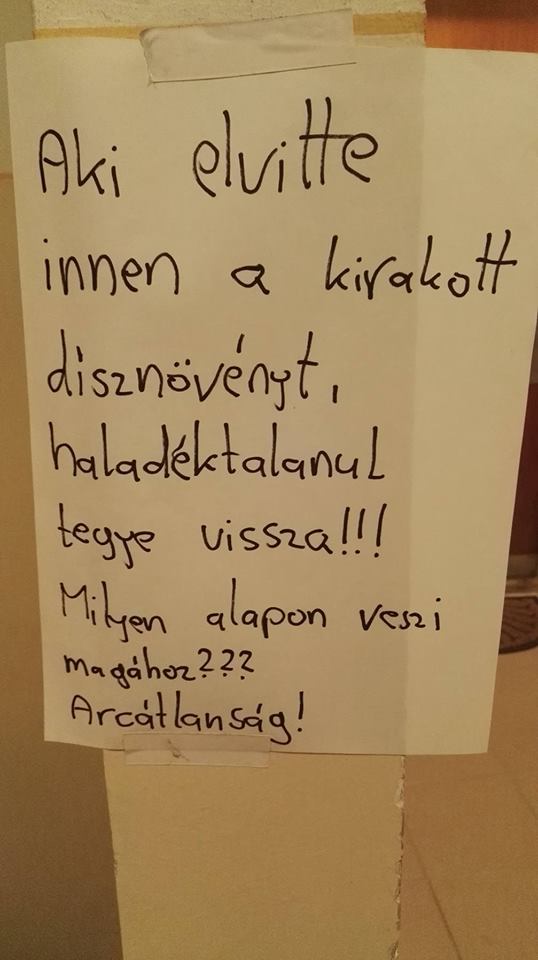 Aki elvitte
innen a kirakott
disznövényt,
haladéktalanul
tegye vissza!!!
Milyen alapon veszi
magához???
Arcátlanság!